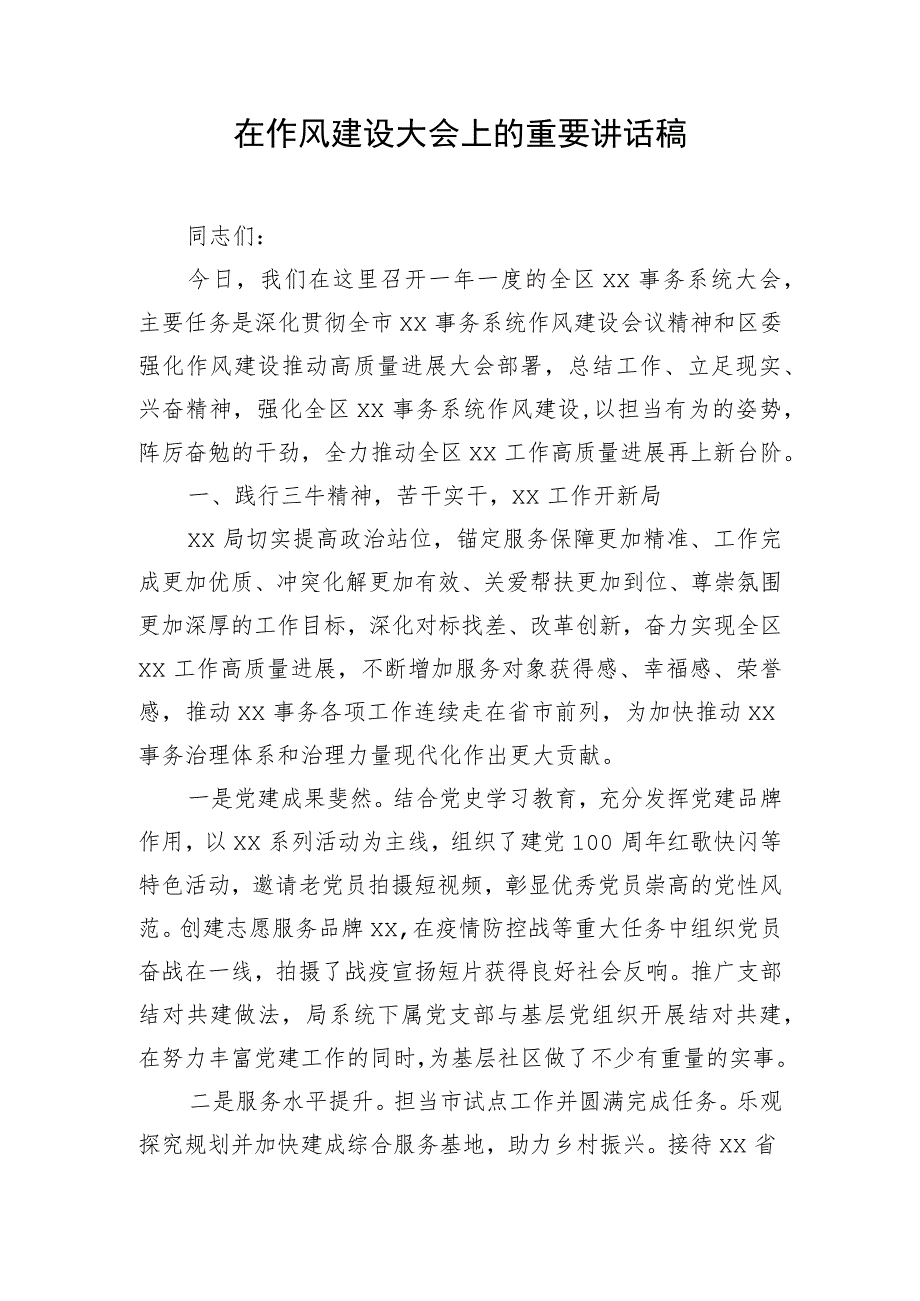 在作风建设大会上的重要讲话稿
同志们：
今日，我们在这里召开一年一度的全区 XX 事务系统大会，
主要任务是深化贯彻全市 XX 事务系统作风建设会议精神和区委
强化作风建设推动高质量进展大会部署，总结工作、立足现实、
兴奋精神，强化全区 XX 事务系统作风建设,以担当有为的姿势，
阵厉奋勉的干劲，全力推动全区 XX 工作高质量进展再上新台阶。
一、践行三牛精神，苦干实干，XX 工作开新局
XX 局切实提高政治站位，锚定服务保障更加精准、工作完
成更加优质、冲突化解更加有效、关爱帮扶更加到位、尊崇氛围
更加深厚的工作目标，深化对标找差、改革创新，奋力实现全区
XX 工作高质量进展，不断增加服务对象获得感、幸福感、荣誉
感，推动 XX 事务各项工作连续走在省市前列，为加快推动 XX
事务治理体系和治理力量现代化作出更大贡献。
一是党建成果斐然。结合党史学习教育，充分发挥党建品牌
作用，以 XX 系列活动为主线，组织了建党 100 周年红歌快闪等
特色活动，邀请老党员拍摄短视频，彰显优秀党员崇高的党性风
范。创建志愿服务品牌 XX,在疫情防控战等重大任务中组织党员
奋战在一线，拍摄了战疫宣扬短片获得良好社会反响。推广支部
结对共建做法，局系统下属党支部与基层党组织开展结对共建，
在努力丰富党建工作的同时,为基层社区做了不少有重量的实事。
二是服务水平提升。担当市试点工作并圆满完成任务。乐观
探究规划并加快建成综合服务基地，助力乡村振兴。接待 XX 省